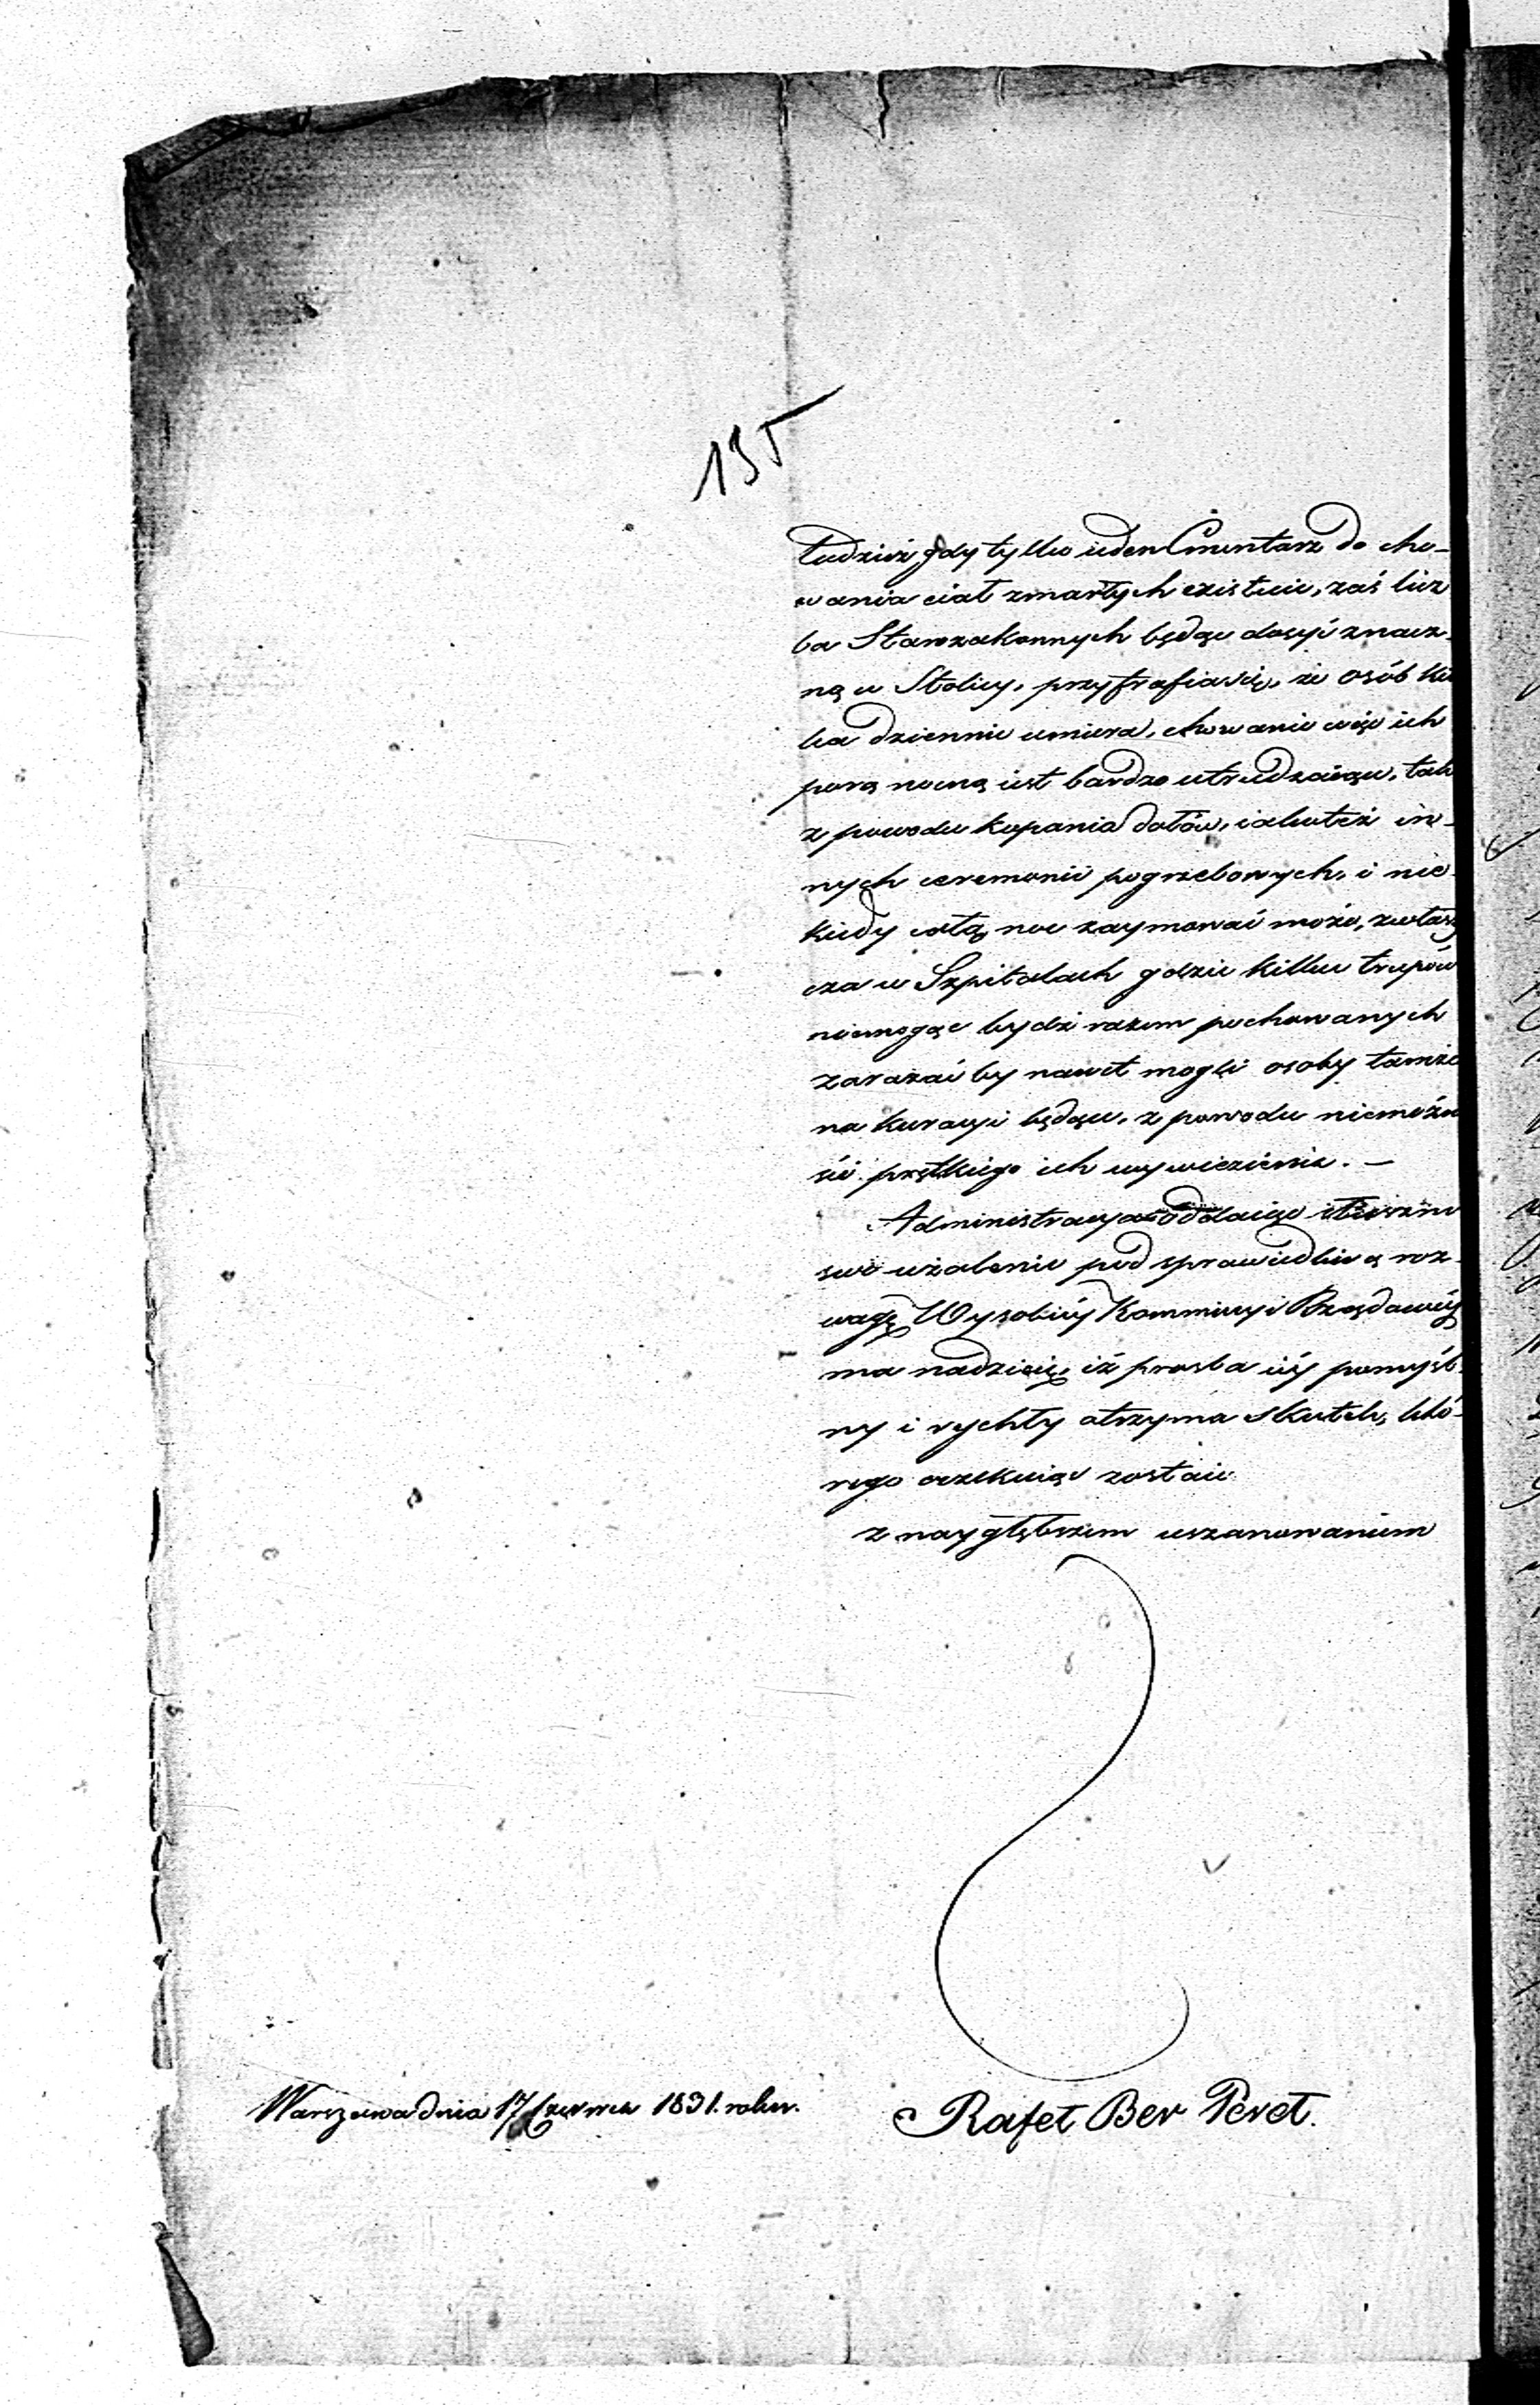 135
Tudzież gdy tylko ieden Cmentarz do cho-
wania ciał zmarłych existuie, zaś licz
ba Starozakonnych będąc dosyć znacz-
ną w Stolicy, przytrafia się, że osób kil
ka dziennie umiera, chowanie więc ich
porą nocną iest bardzo utrudzaiące, tak
z powodu kopania dołów, iako też in-
nych ceremonii pogrzebowych, i nie-
kiedy całą noc zaymować może, zwłasz
cza w Szpitalach gdzie kilku trupów
niemogąc bydź razem pochowanych
zarazać by nawet mogli osoby tamże
na kuracyi będące, z powodu niemożno
ści prętkiego ich wywiezienia. —
Administracya oddaiąc
swe użalenie pod sprawiedliwą roz-
wagę Wysokiéy Kommissyi Rządowéy
ma nadzieię, iż prosba iéy pomyśl-
ny i rychły otrzyma skutek, któ-
rego oczekuiąc zostaie
z naygłębszem uszanowaniem
Warszawa dnia 17 Czerwca 1831. roku.
Rafeł Ber Pereł.